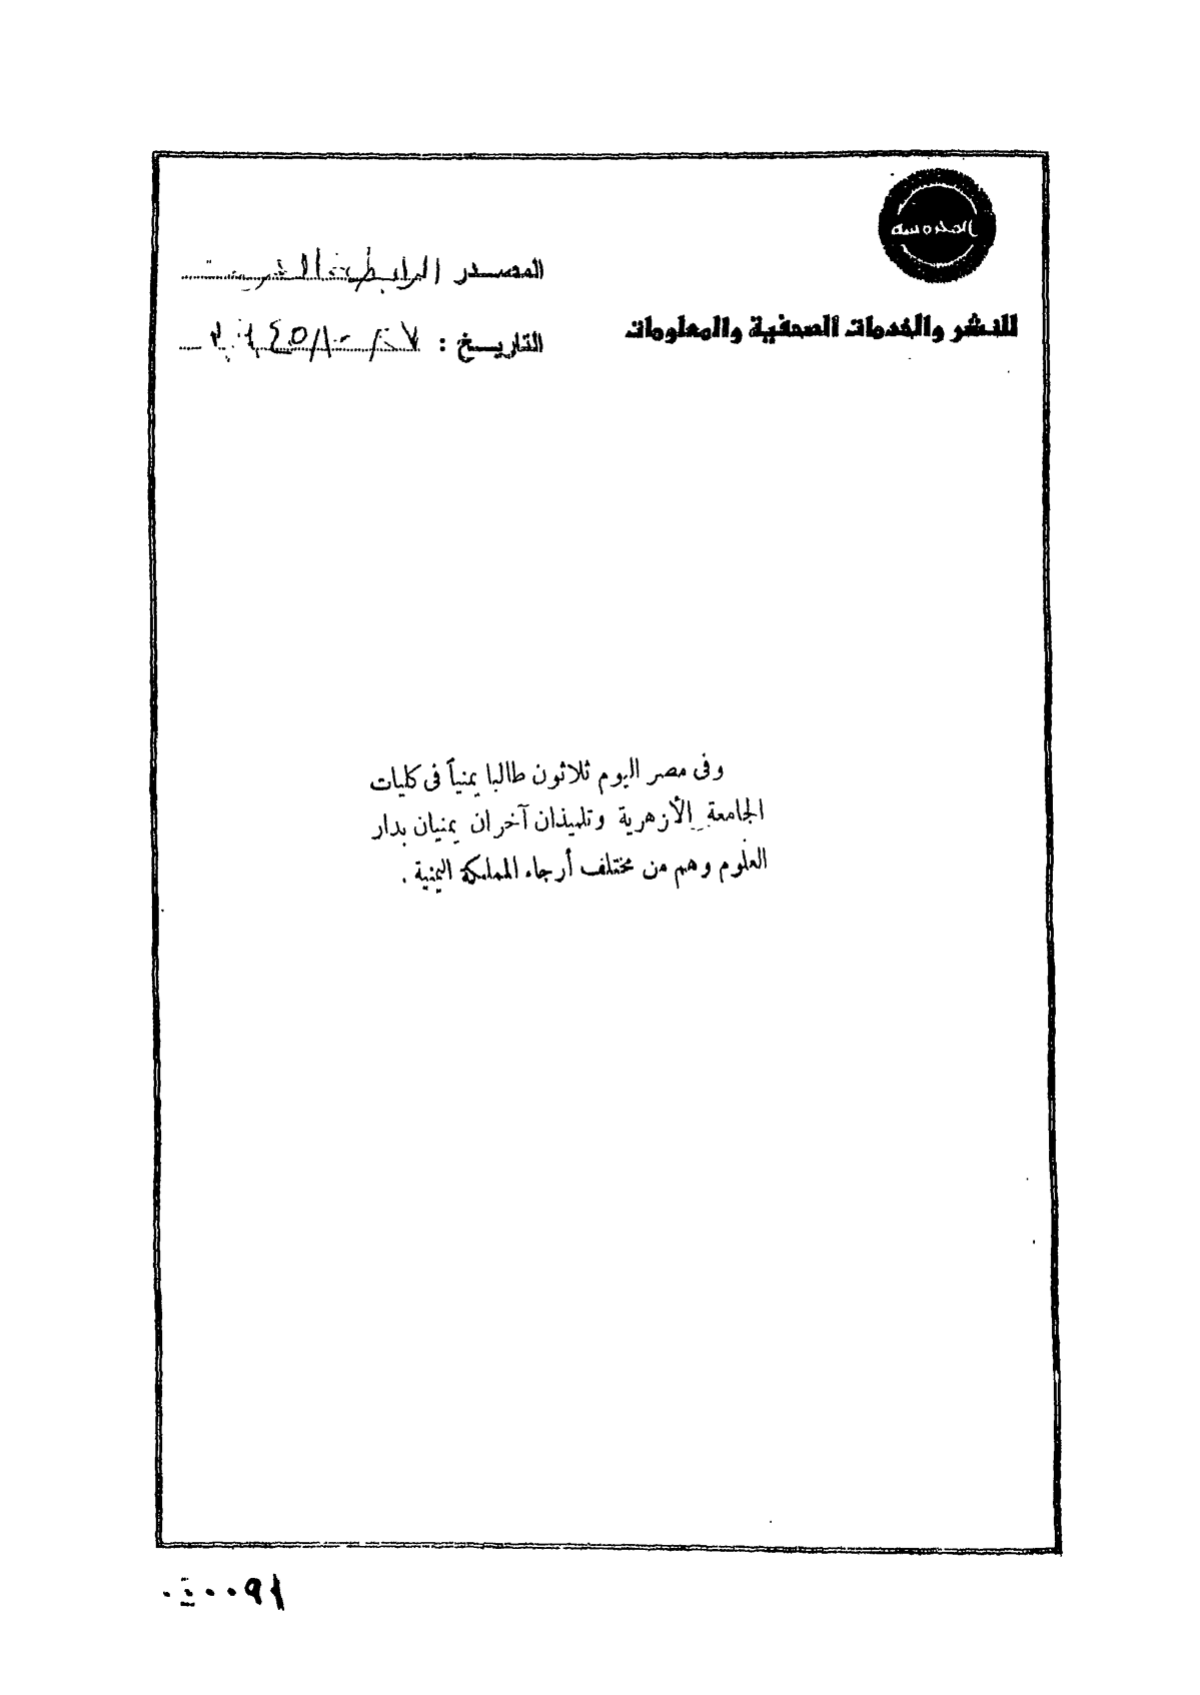 المحروسة
للنشر والخدمات الصحفية والمعلومات
المصدر الرابطة العربية
التاريخ :
وفى مصر اليوم ثلاثون طالبا يمنياً فى كليات
الجامعة الأزهرية وتلميذان آخران يمنيان بدار
العلوم وهم من مختلف أرجاء المملكة اليمنية .